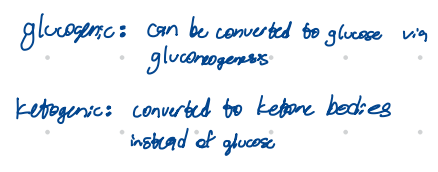 glucogenic: can be converted to glucose via
gluconeogenesis
ketogenic: converted to ketone bodies
instead of glucose